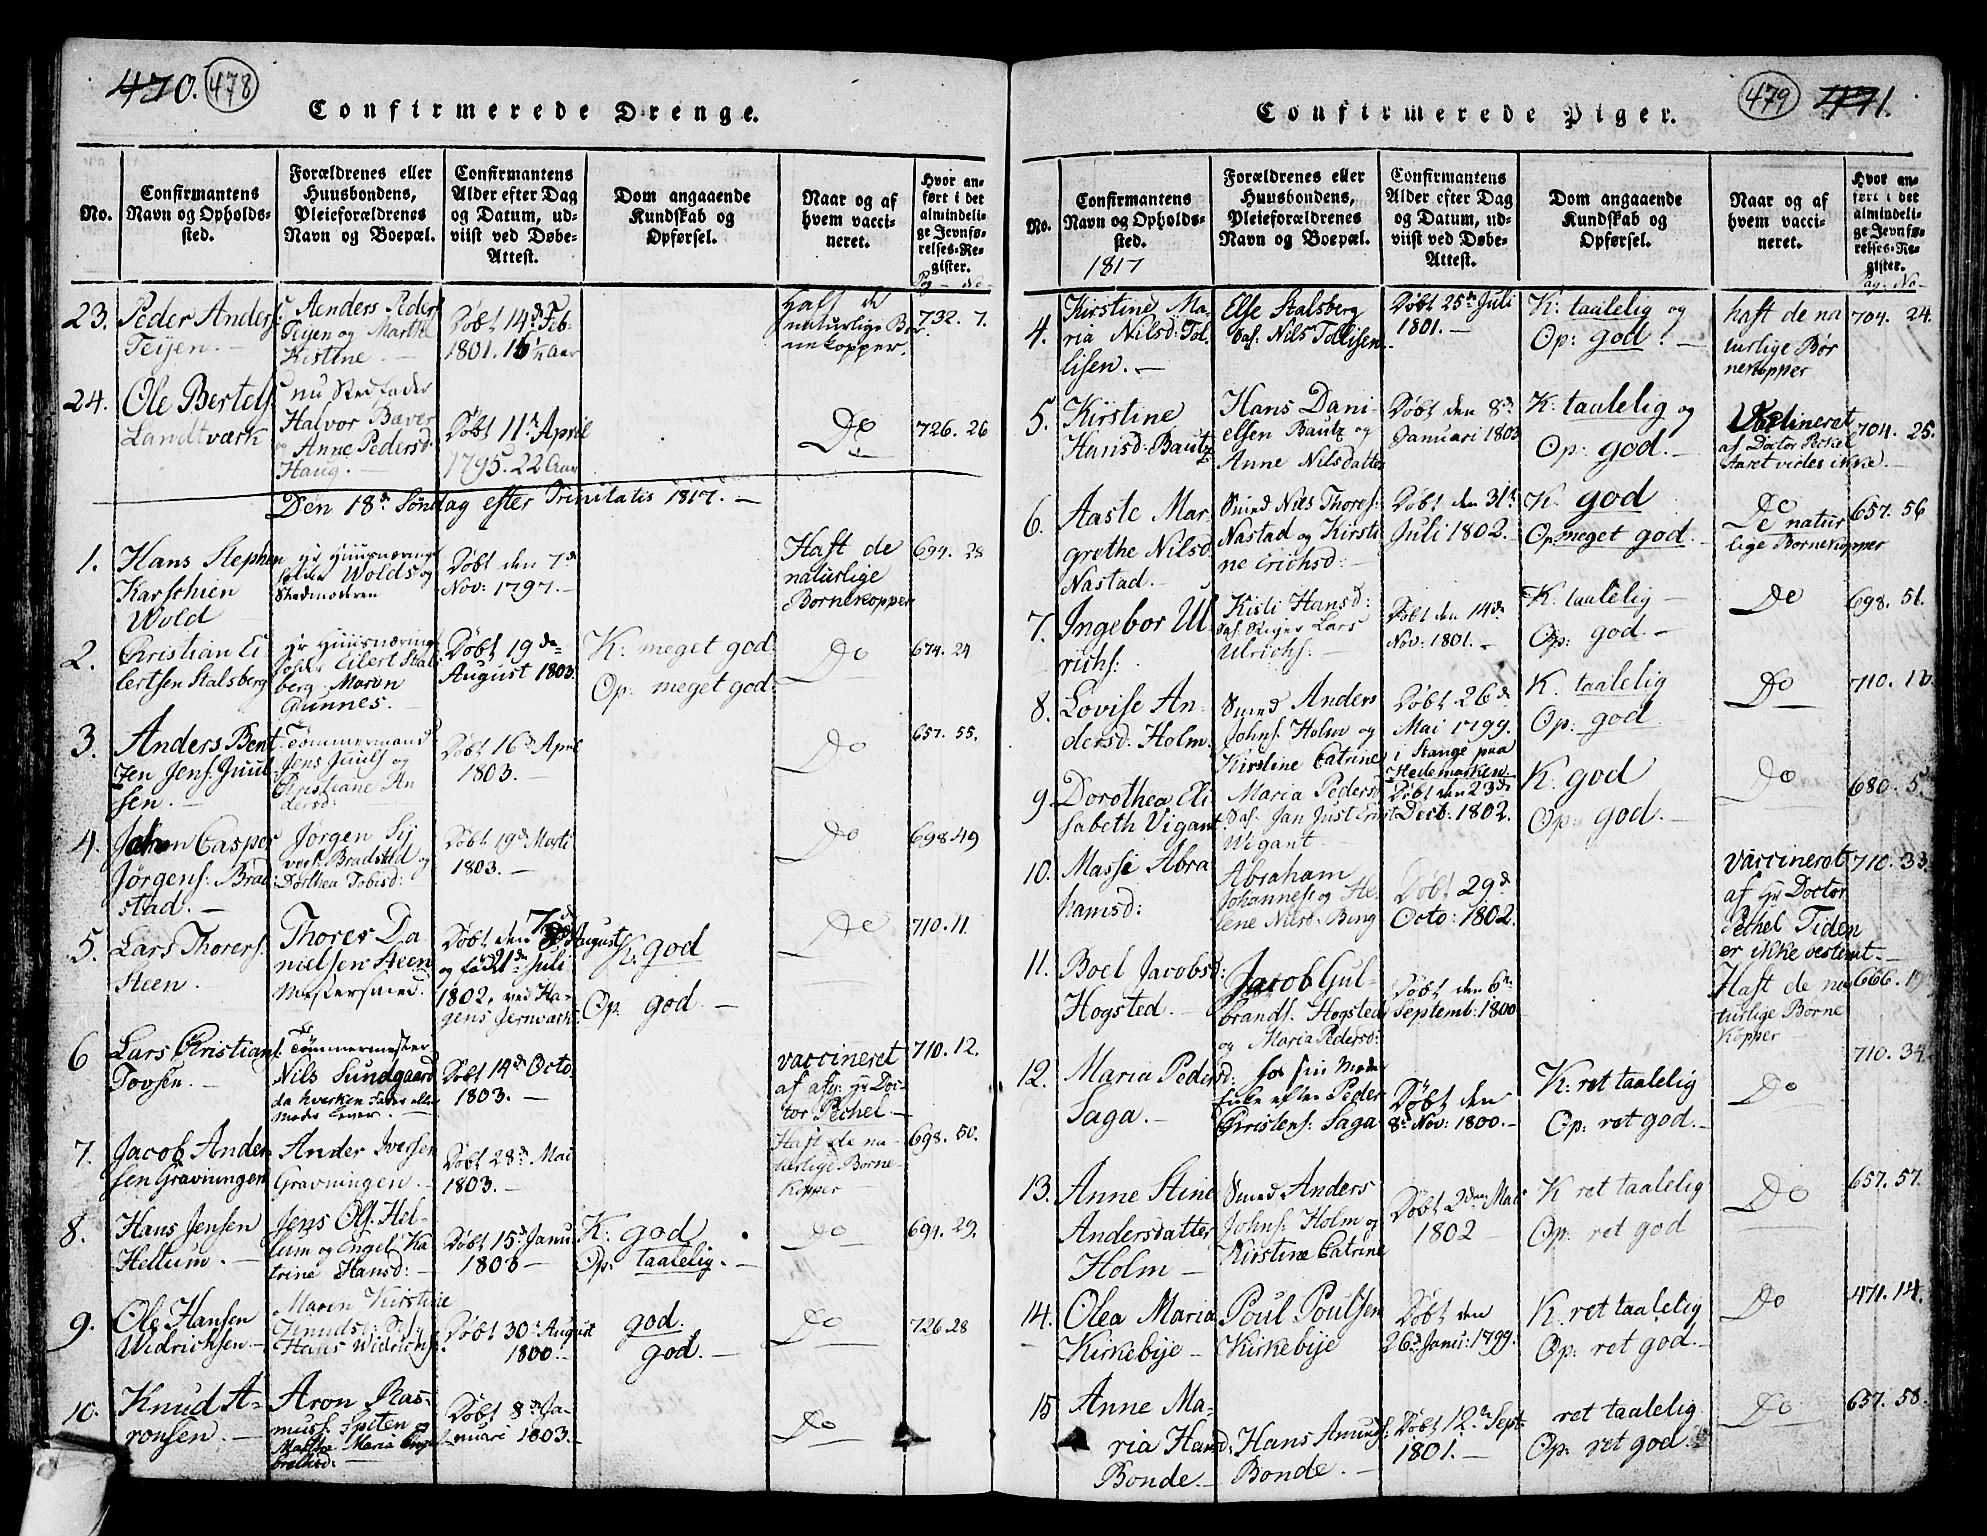 470. 478
Confirmerede Drenge.
No.
Confirmantens
Navn og Opholds-
sted.
Forældrenes eller
Huusbondens,
Pleieforældrenes
Navn og Boepæl.
Confirmantens
Alder efter Dag
og Datum, ud-
viist ved Døbe-
Attest.
Dom angaaende
Kundskab og
Opførsel.
Naar og af
hvem vacci-
neret.
Hvor an-
ført i det
almindeli-
ge Jevnfø-
relses-Re-
gister.
Pag - No -
23. Peder Anders:
Teijen. -
Aenders Peders
Teijen og Marthe
Kistine -
Døbt 14d Feb
1801. 16½ Aar
Haft de
naturlige Bø
nekopper.
732. 7.
24. Ole Bertels.
Landtværk
nu Stedfader
Halvor Baver
og Anne Pedersd
Haug. -
Døbt 11te April
1795. 22 Aar
Do
726. 26
Den 18de Søndag efter Trinitatis 1817. -
1. Hans Stephen
Karschien
Wold
Hr Huusnærings
Wolds og
Stedmoderen
Døbt den 7de
Nov: 1797. -
Haft de
naturlige
Bornekopper
694. 28
2. Christian Ei
lertsen Stalsberg
Hr Huusnærings
Eilert Stal
berg. Maren
Gunnes. -
Døbt 19de
August 1803.
K: meget god.
Op: meget god:
Do
674. 24
3. Anders Bent
zen Jens. Juul
sen. -
Tømmermand
Jens Juuls og
Christiane An
dersd:
Døbt 16d April
1803. -
Do
657. 55.
4. Johan Casper
Jørgens: Brad
stad. -
Jørgen Sij
vert. Bradsted og
Dorthea Tobisd:
Døbt 19d Marti
1803. -
Do
698. 49
5. Lars Thorers.
Steen.
Thorer Da
nielsen Steen
Mestersmed.
Døbt den 7d August
og född 21de Juli
1802. ved Ha-
gens Jernværk:
K: god
Op: god. -
Do
710. 11.
6 Lars Christian
Tovsen. -
Tømmermester
Nils Sundgaard
da hverken Fader eller
Moder lever. -
Døbt 14de Octo:
1803. -
vaccineret
af afg: Hr Doc-
tor Pechel. -
710. 12.
7. Jacob Ander-
sen Gravningen
Ander Iversen
Gravningen. -
Døbt 28d Mai
1803. -
Haft de na-
turlige Borne-
kopper
698. 50.
8. Hans Jensen
Hellum. -
Jens Ols. Hel-
lum og Engel Ka
trine Hansd: -
Døbt 15d Janu
1803 -
K: god
Op: taalelig. -
Do
694. 29.
9. Ole Hansen
Widrichsen -
Maren Kirstine
Knudsd:
Hans Widrichs
Døbt 30te August
1800. -
god.
god. -
Do
726. 28
10. Knud A-
ronsen. -
Aron Ras-
muss. Spiten og
Maria Engel
brethsd:
Døbt 8de Ja-
nuari 1803. -
Do
479 471.
Confirmerede Piger.
No.
Confirmantens
Navn og Opholds-
sted.
1817
Forældrenes eller
Huusbondens,
Pleieforældrenes
Navn og Boepæl.
Confirmantens
Alder efter Dag
og Datum, ud-
viist ved Døbe-
Attest.
Dom angaaende
Kundskab og
Opførsel.
Naar og af
hvem vacci-
neret.
Hvor an-
ført i det
almindeli-
ge Jevnfø-
relses-Re-
gister.
Pag: No -
4. Kirstine Ma-
ria Nilsd: Tol
lisen. -
Else Stalsberg
Nils Tollisen
Døbt 25de Juli
1801. -
K: taalelig og
Op: god. -
haft de na
turlige Bør
nekopper
704. 24.
5. Kirstine
Hansd: Bautz
Hans Dani-
elsen Bautz og
Anne Nilsdatter
Døbt den 8de
Januari 1803
K: taalelig og
Op: god. -
Vaccineret
af Doctor Pechel
Aaret vides ikke. -
704. 25.
6. Aaste Mar-
grethe Nilsd:
Nastad.
Smed Nils Thores:
Nastad og Kirsti
ne Erichsd: -
Døbt den 31te
Juli 1802.
K. god
Op: meget god.
De natur
lige Bornekopper
657. 56
7. Ingebor Ul
richs:
Kisti Hansd:
Lars
Ulrichs. -
Døbt den 14de
Nov: 1801. -
K: taalelig -
Op: god. -
Do
698. 51.
8. Lovise An
dersd: Holm.
Smed Anders
Johns. Holm og
Kirstine Catrine
Døbt 26de
Mai 1799.
i Stange paa
Hedemarken
K. taalelig
Op: god
Do
710.
9 Dorothea Eli
sabeth Vigant.
Maria Pedersd
Jan Just Ernst
Wigant. -
Døbt den 23de
Decb: 1802.
K: god
Op: god. -
Do
680. 5
10. Masse Abra
hamsd:
Abraham
Johannes og He
lene Nilsd: Bing
Døbt 29d
Octo: 1802.
vaccineret
af Hr Doctor
Pechel Tiden
er ikke bestemt. -
710. 33.
11. Boel Jacobsd:
Hogsted. -
Jacob Gul-
brands. Hogsted
og Maria Pedersd:
Døbt den 6te
Septemb: 1800
Haft de na
turlige Børne
Kopper
666.
12. Maria Pedersd:
Saga. -
Enke efter Peder
Christens: Saga
Døbt den
8d Nov: 1800. -
K: ret taalelig
Op: ret god. -
Do
710. 34.
13. Anne Stine
Andersdatter
Holm -
Smed Anders
Johns. Holm og
Kirstine Catrine
Døbt 2den Mai
1802 -
K ret taalelig
Op: ret god
Do
657. 57.
14. Olea Maria
Kirkebije -
Poul Poulsen
Kirkebije
Døbt den
26d Janu: 1799.
K. ret taalelig
Op: ret god. -
Do
471. 14.
15 Anne Ma-
ria Hansd:
Bonde -
Hans Amunds:
Bonde. -
Døbt 12te Sept
1801. -
ret taalelig
Op: ret god.
Do
657. 58.